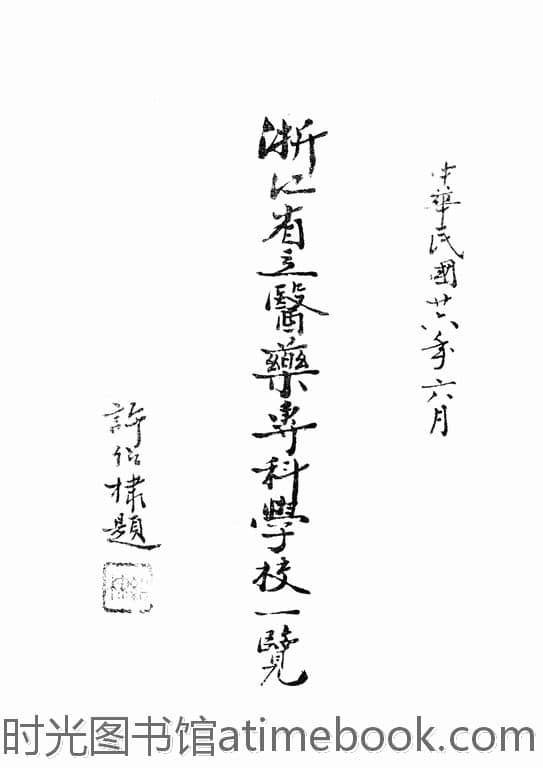 中華民國廿六年六月
浙江省立醫藥專科學校一覽
許紹棣題
时光图书馆atimebook.com